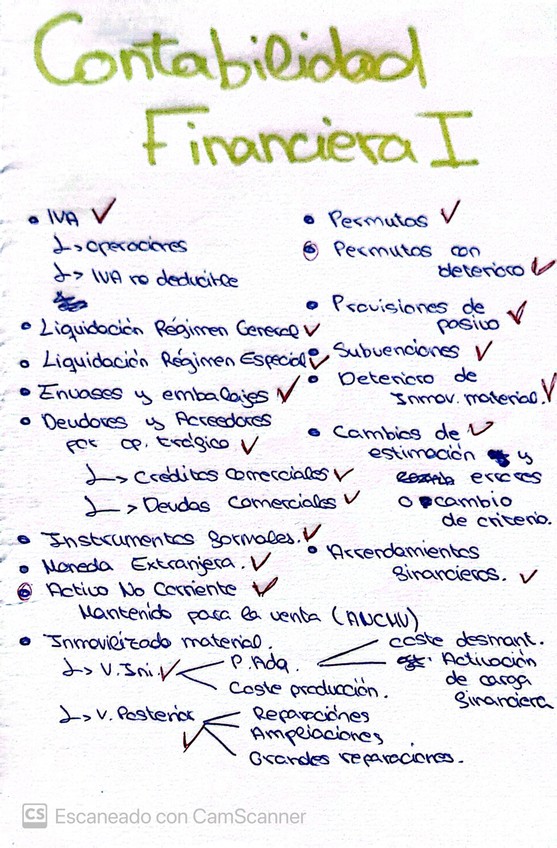 Contabilidad
Financiera I
• IVA ✓
↳ operaciones
↳ IVA no deducible
• Liquidación Régimen General ✓
• Liquidación Régimen Especial ✓
• Envases y embalajes ✓
• Deudores y Acreedores
por op. tráfico ✓
↳ Créditos comerciales ✓
↳ Deudas comerciales ✓
• Instrumentos formales. ✓
• Moneda Extranjera. ✓
• Activo No Corriente ✓
Mantenido para la venta (ANCMV)
• Inmovilizado material.
↳ V. Ini. ✓
P. Adq.
coste desmant.
Activación
de carga
financiera
Coste producción.
↳ V. Posterior ✓
Reparaciones
Ampliaciones
Grandes reparaciones.
• Permutas ✓
• Permutas con
deterioro ✓
• Provisiones de
pasivo ✓
• Subvenciones ✓
• Deterioro de
Inmov. material. ✓
• Cambios de ✓
estimación y
errores
o cambio
de criterio.
• Arrendamientos
financieros. ✓
CS Escaneado con CamScanner